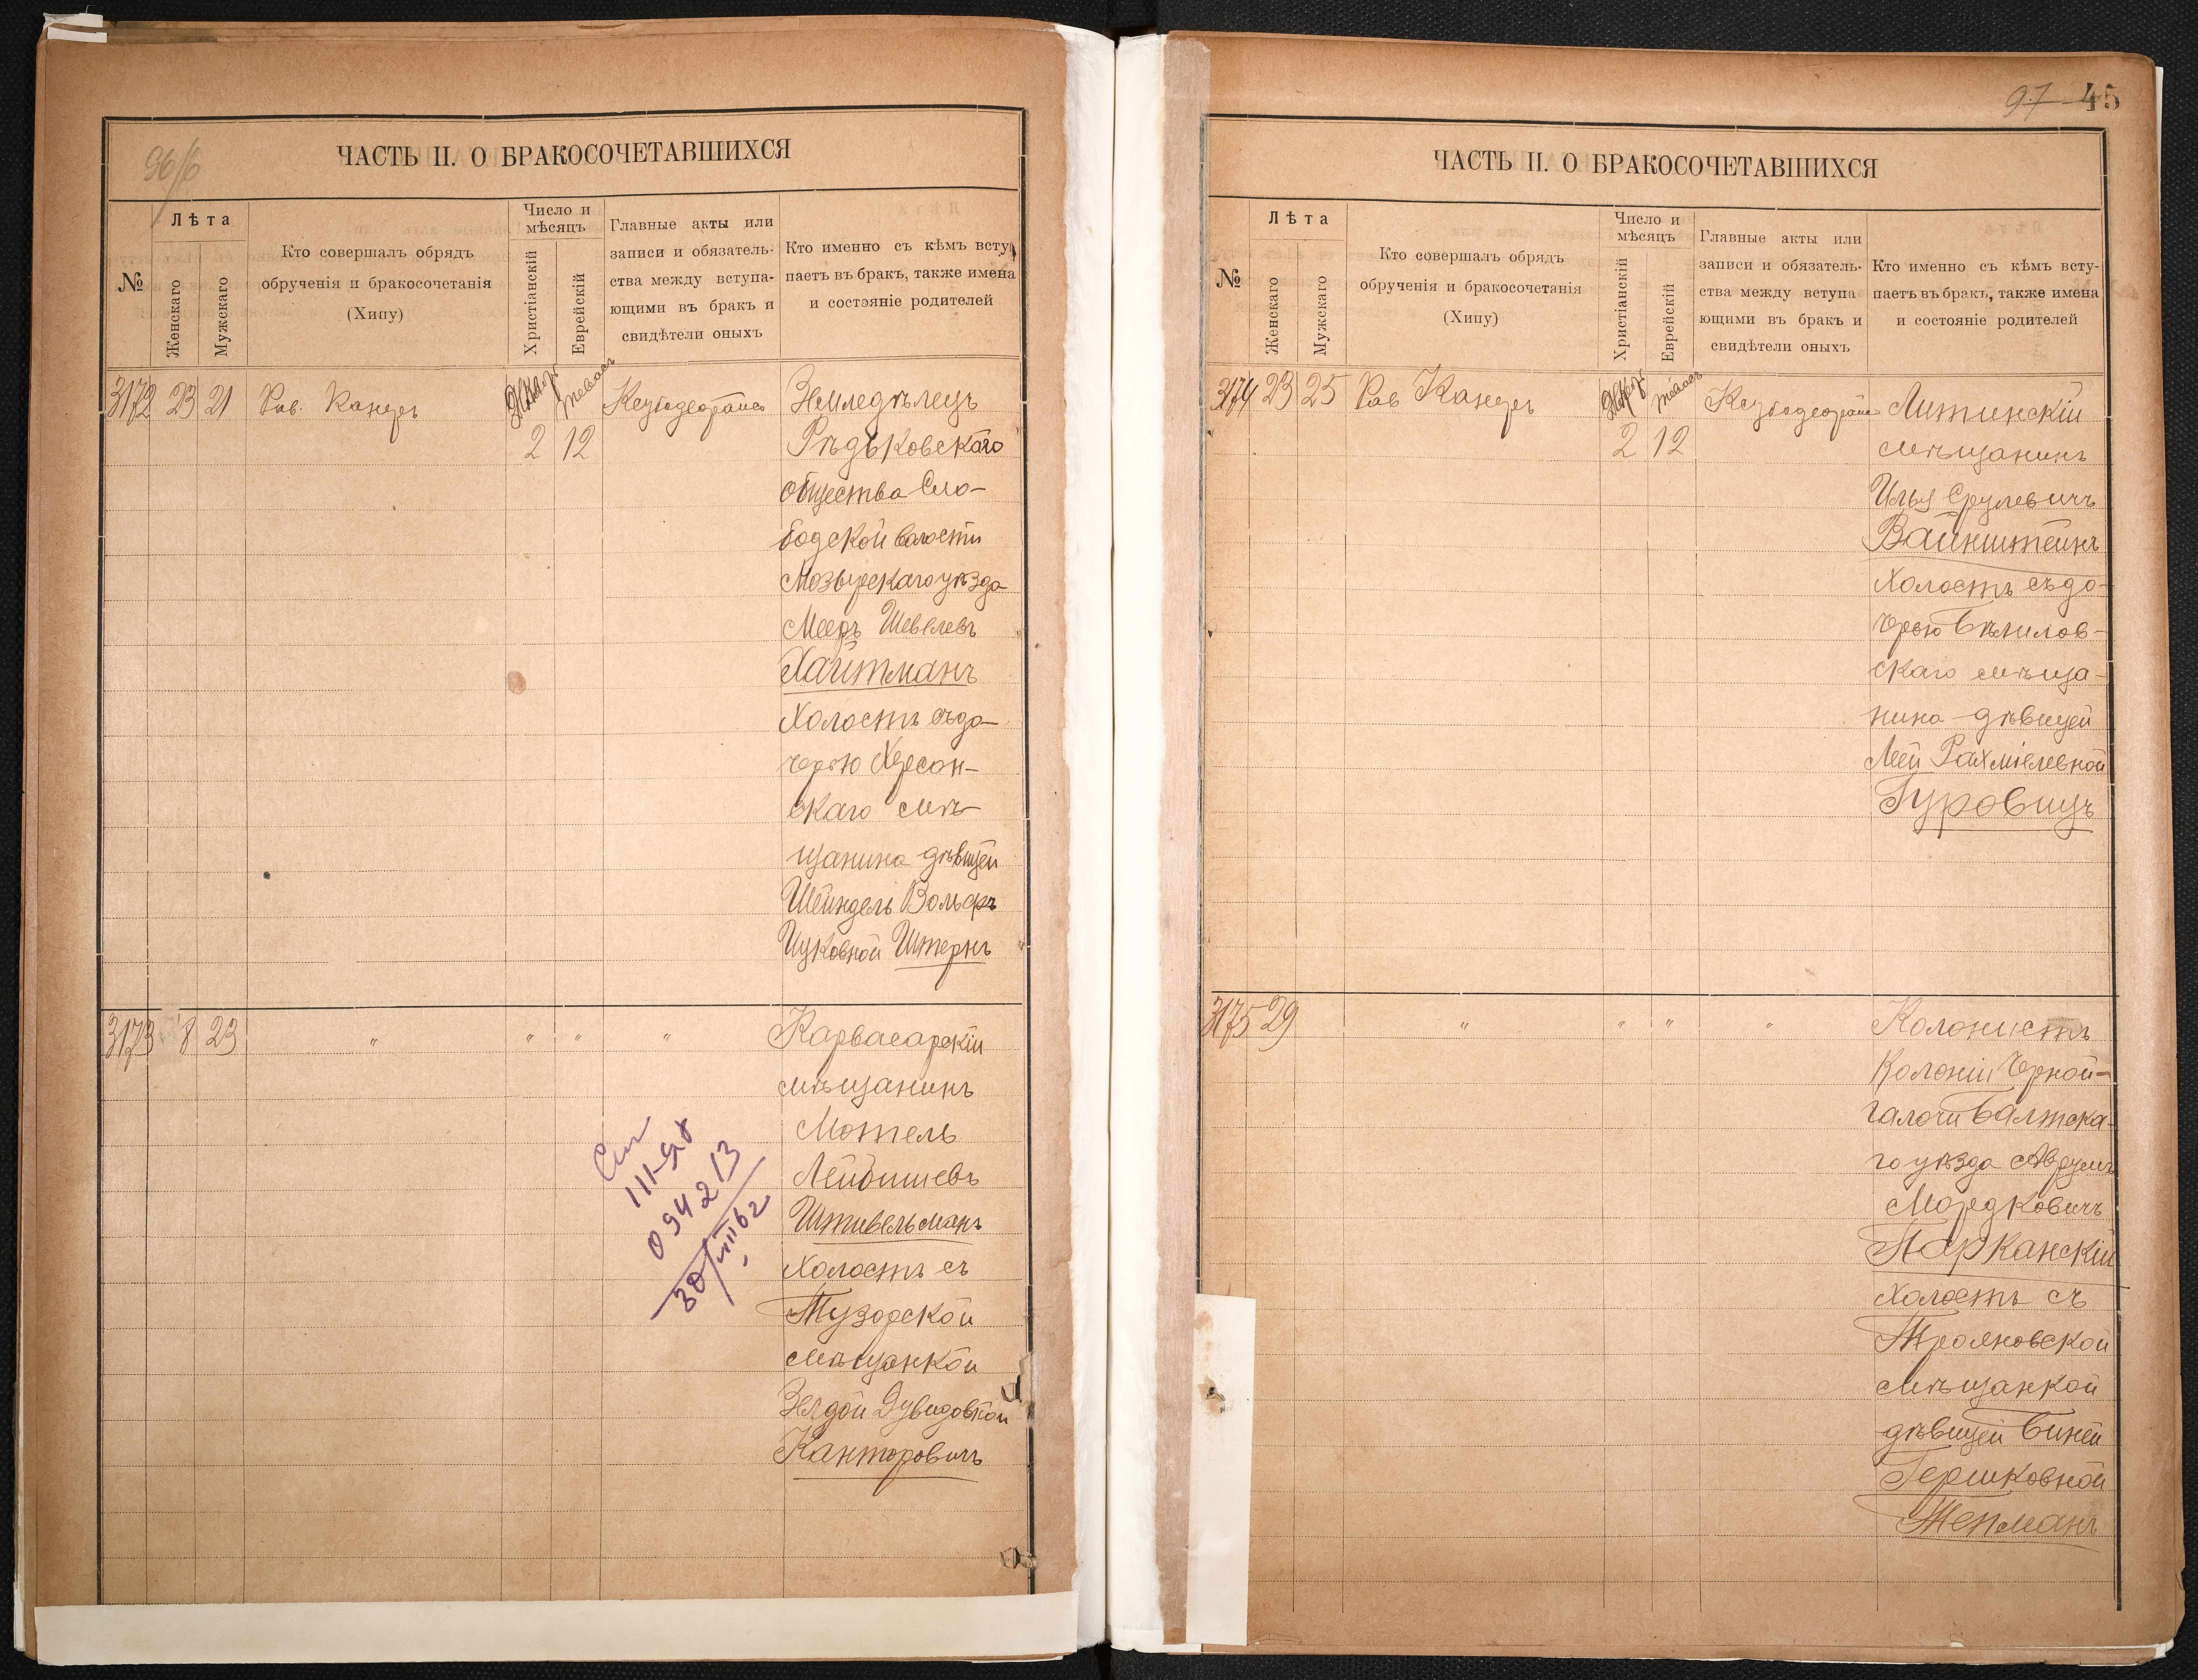 96/6
ЧАСТЬ II. О БРАКОСОЧЕТАВШИХСЯ
№
Лѣта
Женскаго
Мужскаго
Кто совершалъ обрядъ
обрученія и бракосочетанія
(Хипу)
Число и
мѣсяцъ
Христіанскій
Еврейскій
Главные акты или
записи и обязатель-
ства между вступа-
ющими въ бракъ и
свидѣтели оныхъ
Кто именно съ кѣмъ всту
паетъ въ бракъ, также имена
и состояніе родителей
3172 23 21 Рав. Канеръ
2 12
Земледѣлецъ
Рѣдьковскаго
общества Сло-
бодской волости
Мозырскаго уѣзда
Мееръ Шевелевъ
Хайтманъ
Холостъ съ до-
черью Херсон-
скаго мѣ-
щанина дѣвицей
Шейндель Вольфъ
Ицковной Штернъ
3173 18 23 " " " "
Карвасарскій
мѣщанинъ
Мотель
Лейбишевъ
Штивельманъ
Холостъ съ
Тузорской
мѣщанкой
Зелдой Дувидовной
Канторовичъ
094213
97 45
ЧАСТЬ II. О БРАКОСОЧЕТАВШИХСЯ
№
Лѣта
Женскаго
Мужскаго
Кто совершалъ обрядъ
обрученія и бракосочетанія
(Хипу)
Число и
мѣсяцъ
Христіанскій
Еврейскій
Главные акты или
записи и обязатель-
ства между вступа
ющими въ бракъ и
свидѣтели оныхъ
Кто именно съ кѣмъ всту-
паетъ въ бракъ, также имена
и состояніе родителей
3174 23 25 Рав Канеръ
2 12
Литинскій
мѣщанинъ
Илья Срулевичъ
Вайнштейнъ
Холостъ съ до-
черью Бѣлилов-
скаго мѣща-
нина дѣвицей
Леей Рахміелевной
Гуровицъ
3175 29 " " " "
Колонистъ
Колоніи Чрной-
галочи Балтска-
го уѣзда Аврумъ
Мордковичъ
Парканскій
Холостъ съ
Трояновской
мѣщанкой
дѣвицей Биней
Гершковной
Тепманъ